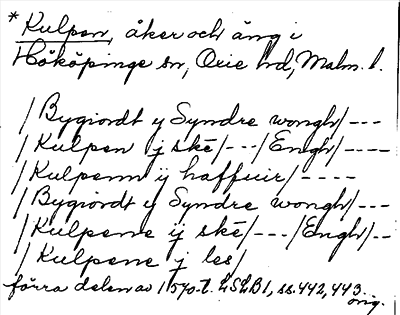 * Kulpen, åker och äng i
Hököpinge sn, Oxie hd, Malm. l.
/ Bygiordt y Syndre wongh / ---
/ Kulpen j ské / --- / Engh / ----
/ Kulpenn ij haffuir / ----
/ Bygiordt y Syndre wongh / ---
/ Kulpene ij ské / --- / Engh / --
/ Kulpene j les /
förra delen av 1570-t. LSLB1, ss. 442, 443.
orig.